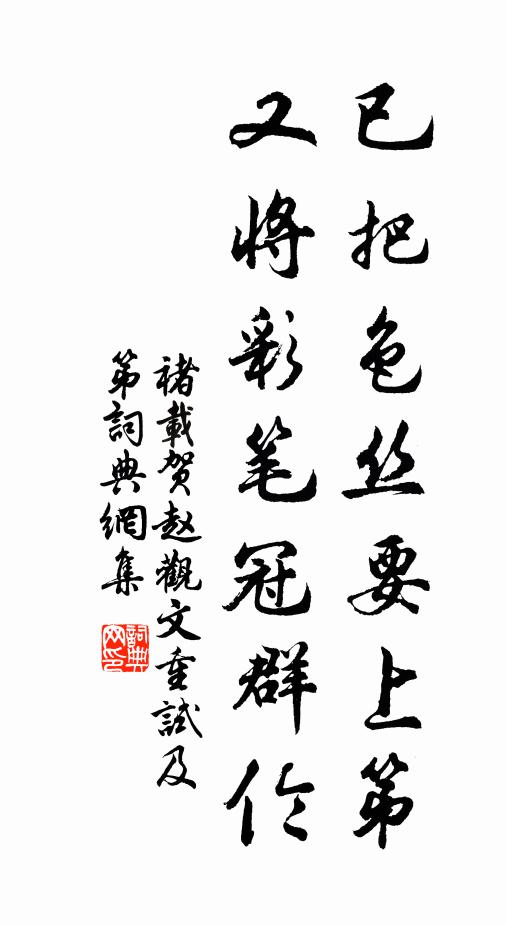 已把色丝要上第
又将彩笔冠群伦
褚載贺赵觀文重試及
第詞典網集
詞典网印